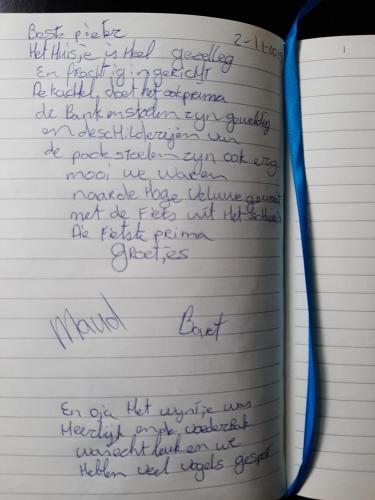 2-11-20
Beste pieter
Het Huisje is Heel gezelleg
En prachtig ingericht
De kachel doet het ook prima
de Bank en stoelen zyn geweldig
en de schilderijen van
de paddestoelen zyn ook erg
mooi we waren
naar de Hoge Veluwe geweest
met de Fiets uit Het schuur
Die Fietste prima
Groetjes
Maud Bart
En oja Het wyntje was
Heerlijk en de voederbak
was echt leuk en we
Hebben veel vogels gespot
1